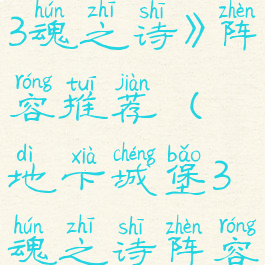 hún zhī shī zhèn
3魂之诗》阵
róng tuī jiàn
容推荐(
dì xià chéng bǎo
地下城堡3
hún zhī shī zhèn róng
魂之诗阵容